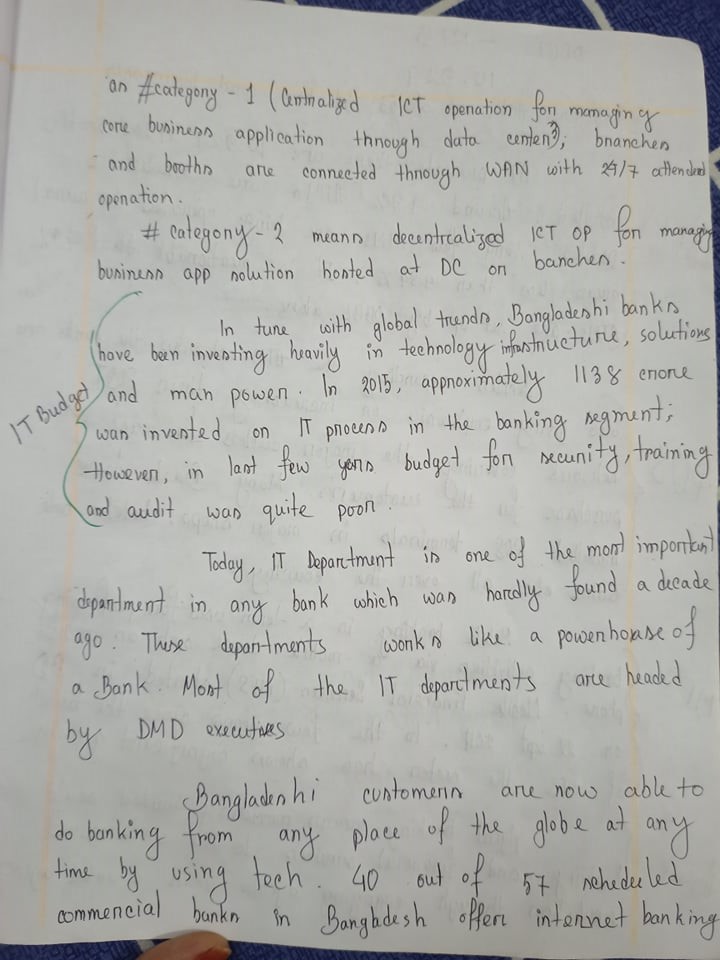 as #category - 1 (Centralized ICT operation for managing
core business application through data center), branches
and booths are connected through WAN with 24/7 attended
operation.
# category - 2 means decentralized ICT OP for managing
business app solution hosted at DC or banches.
In tune with global trends, Bangladeshi banks
have been investing heavily in technology infrastructure, solutions
and man power. In 2015, approximately 1138 crore
IT Budget
was invested on IT process in the banking segment;
However, in last few years budget for security, training
and audit was quite poor.
Today, IT Department is one of the most important
department in any bank which was hardly found a decade
ago. These departments works like a powerhouse of
a Bank. Most of the IT departments are headed
by DMD executives
Bangladeshi customers are now able to
do banking from any place of the globe at any
time by using tech. 40 out of 57 scheduled
commercial banks in Bangladesh offers internet banking